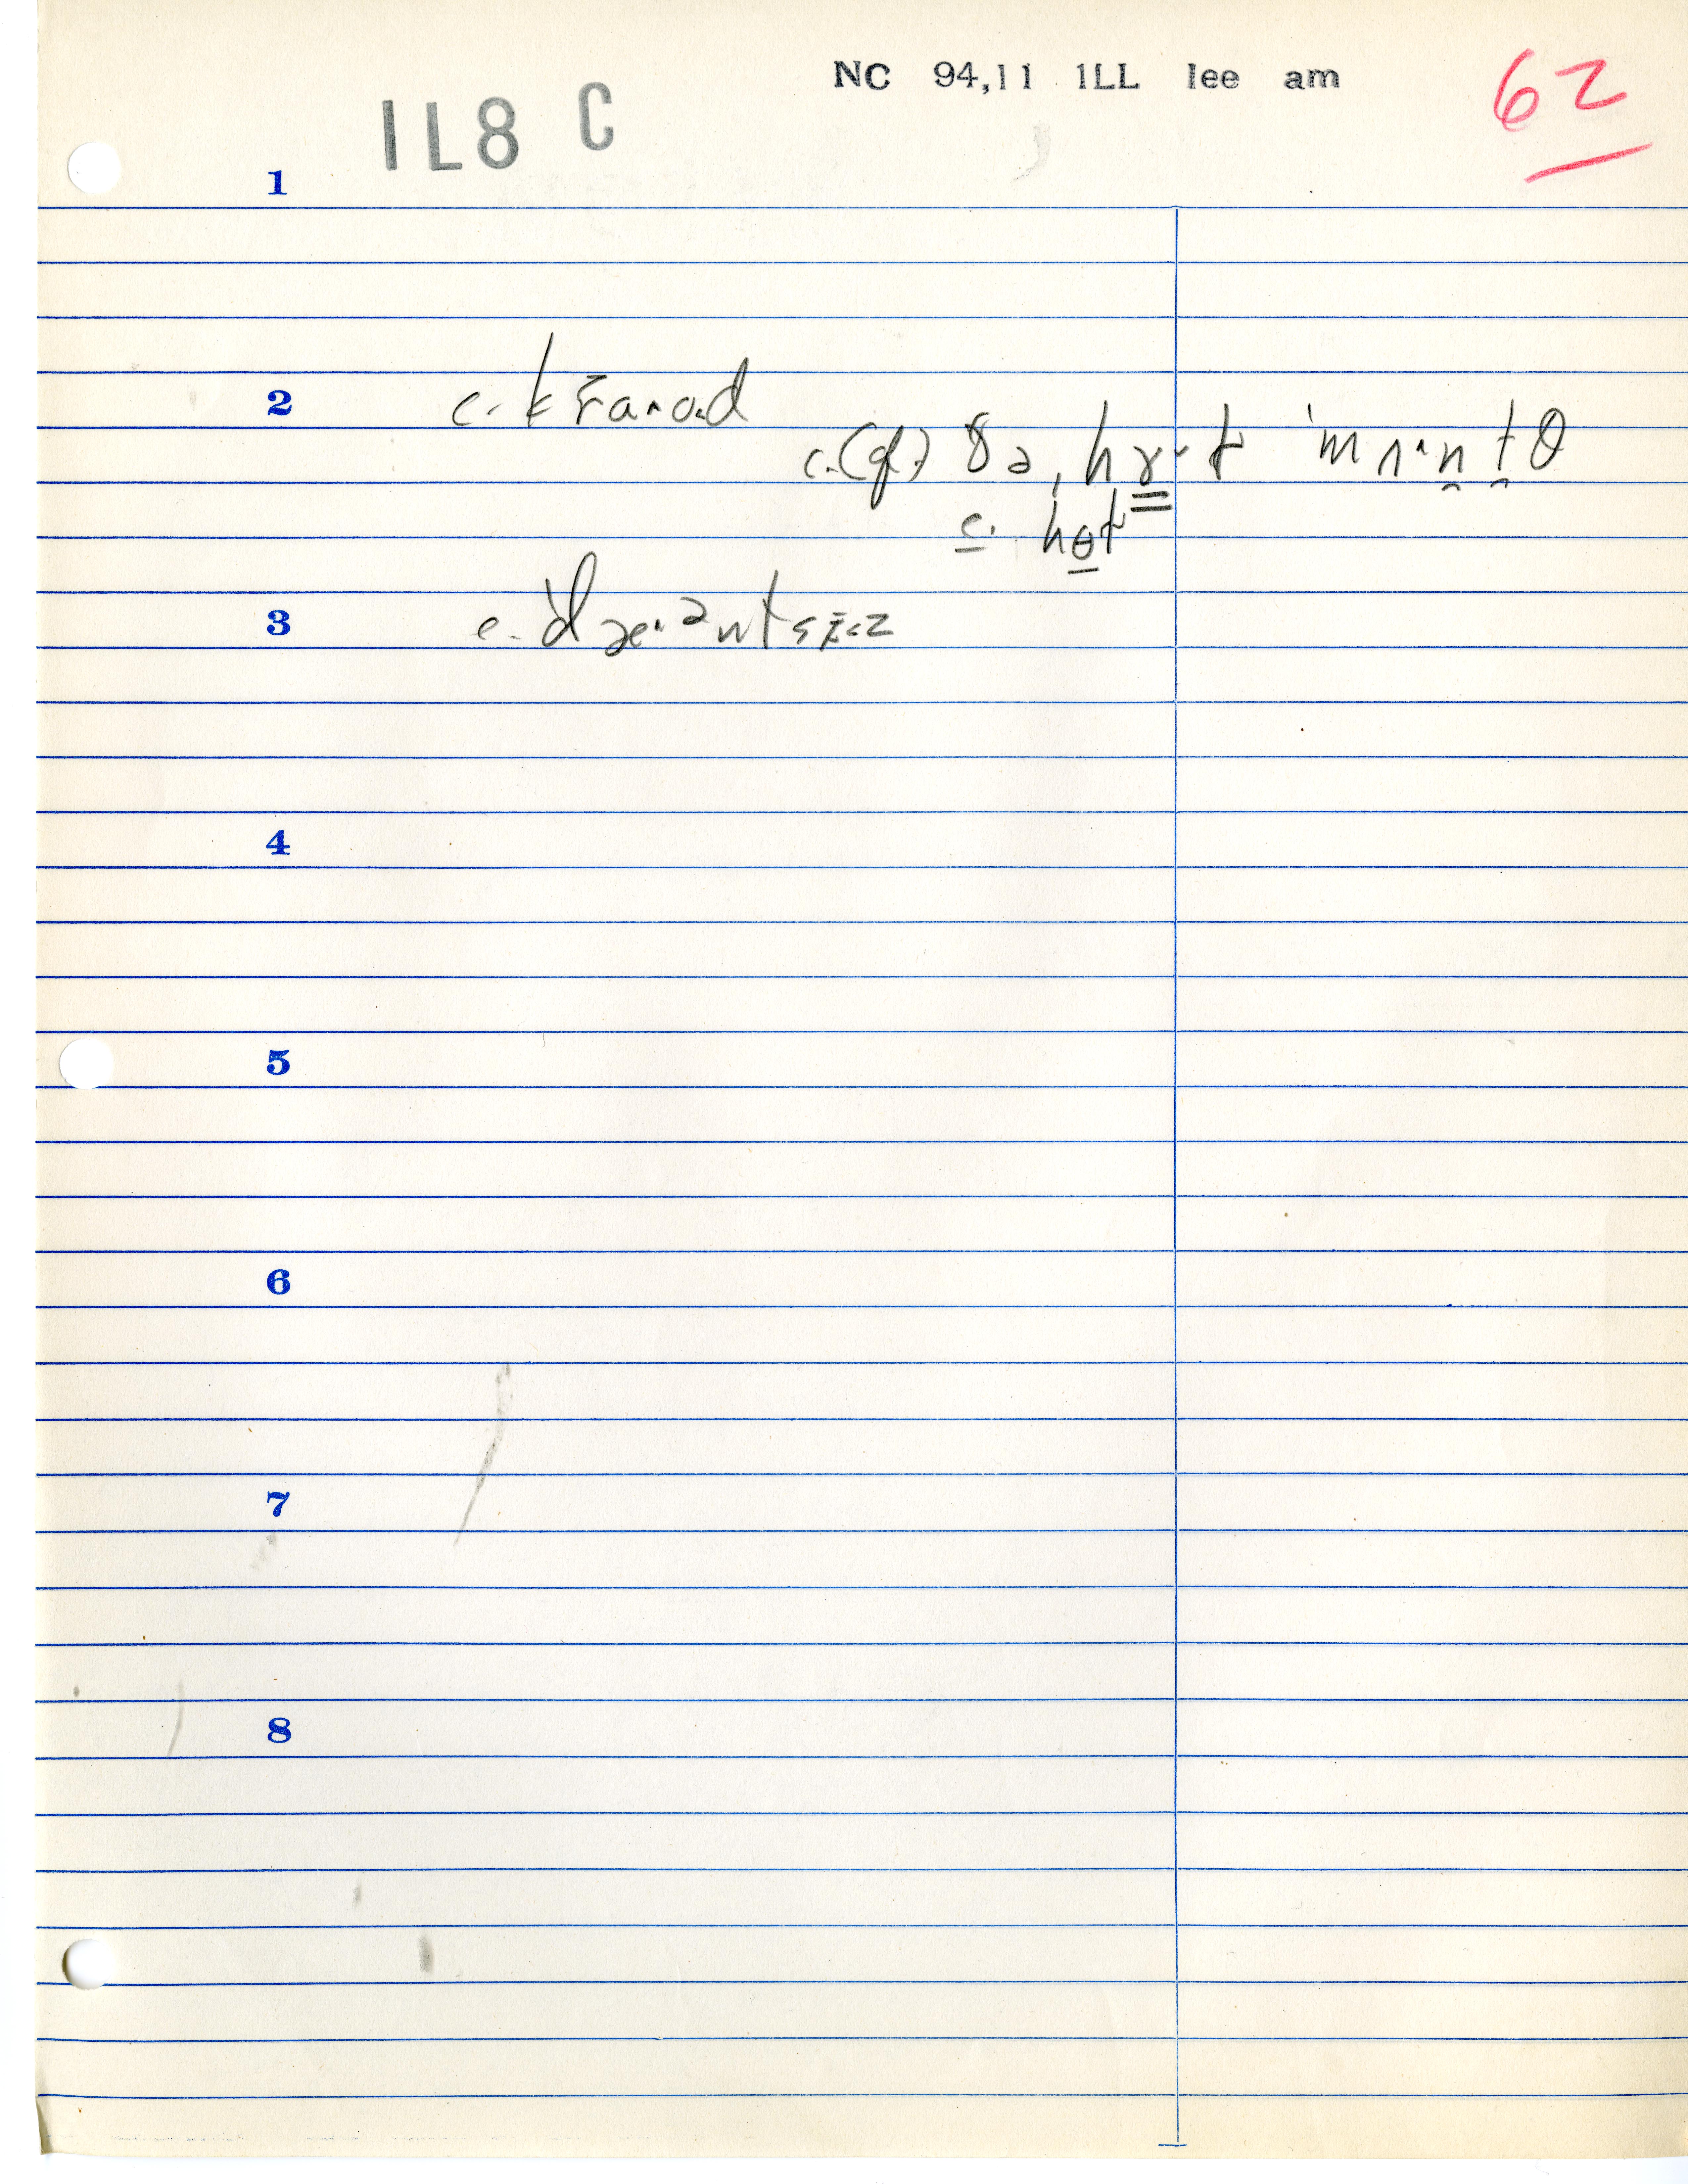 NC 94,11 1LL lee am
62
1L8 C
1
2 c. kr̄a·ɑ.d
c.(qf.) ðə ˌhɤ·t ˈmʌ·n̯t̯θ
c. hɵt
3
4
5
6
7
8